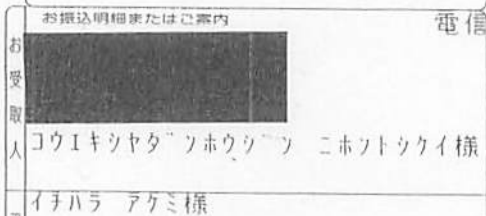 お振込明細またはご案内
電信
お受取人
コウエキシヤダンホウジン ニホントシケイ様
イチハラ アケミ様